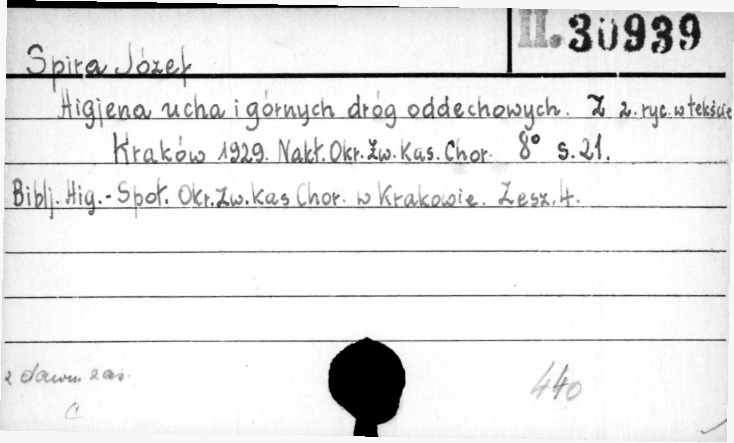 II. 30939
Spira Józef
Higjena ucha i górnych dróg oddechowych. Z 2. ryc. w tekście
Kraków 1929. Nakł. Okr. Zw. Kas. Chor. 8° s. 21.
Biblj. Hig.-Społ. Okr. Zw. Kas Chor. w Krakowie. Zesz. 4.
z dawn. zas.
C
440